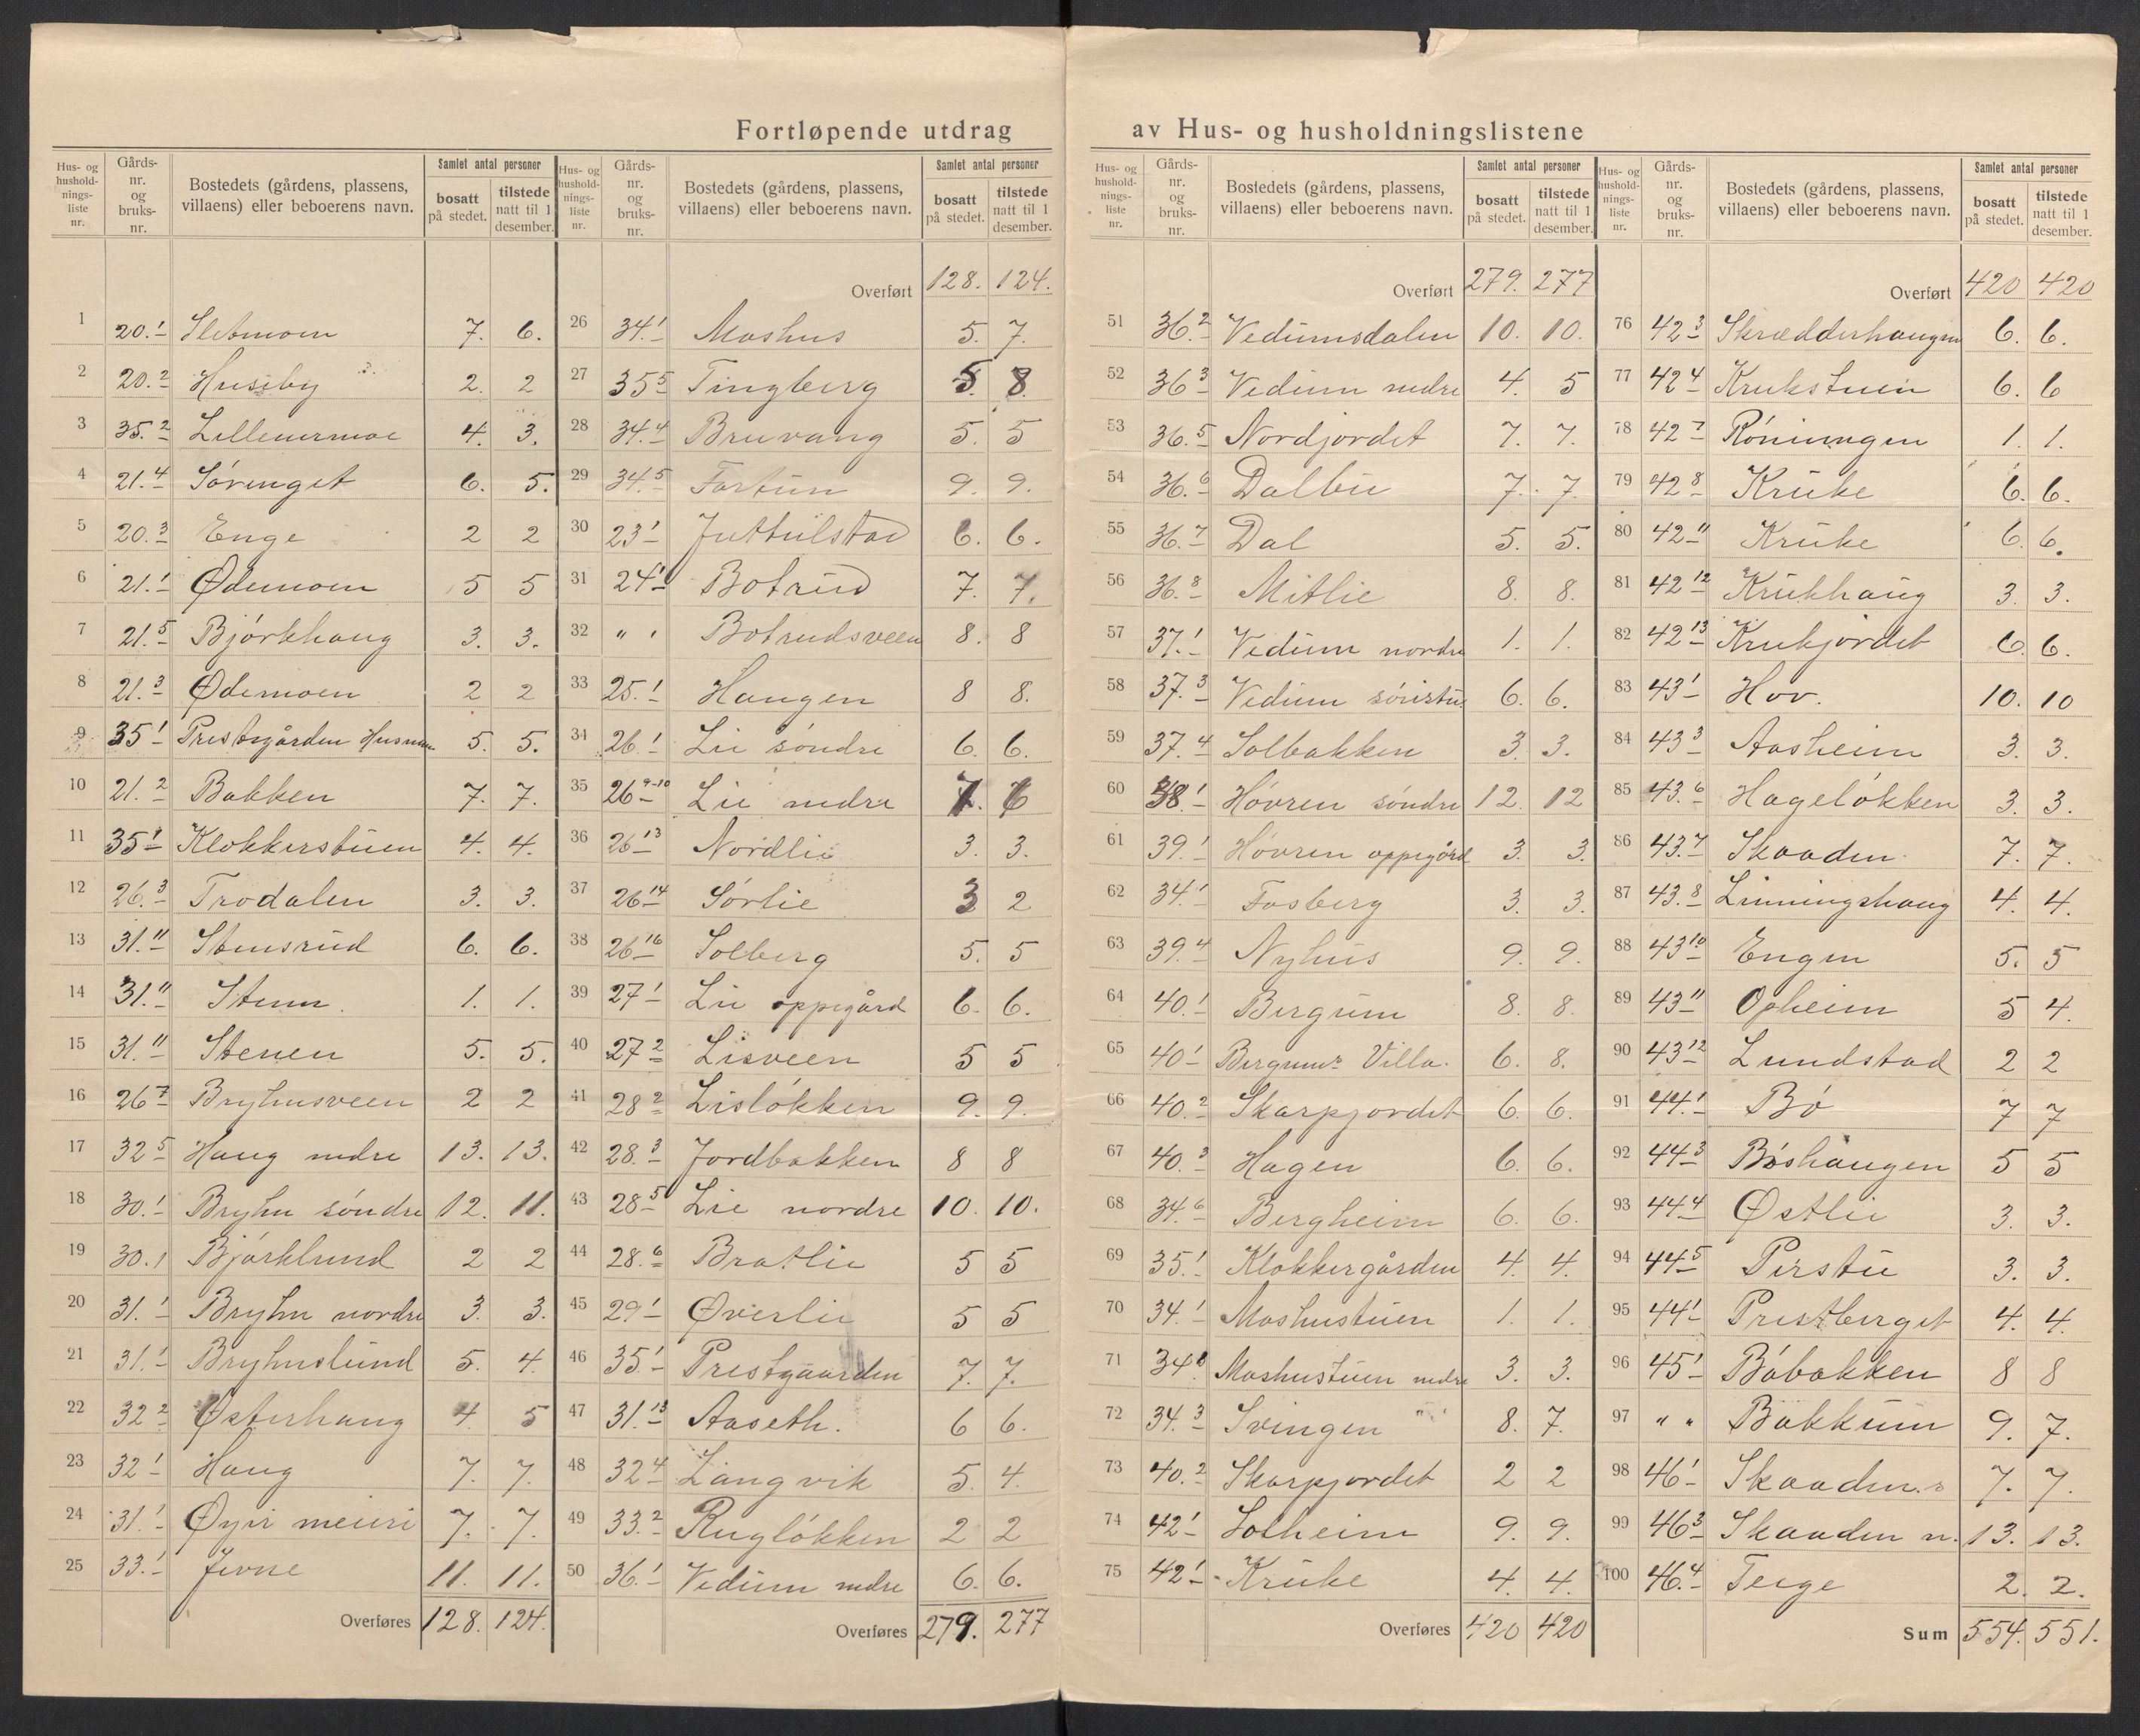 Fortløpende utdrag av Hus- og husholdningslistene
Hus- og husholdningsliste nr. Gårds- nr. og bruks- nr. Bostedets (gårdens, plassens, villaens) eller beboerens navn. Samlet antal personer bosatt på stedet. tilstede natt til 1 desember.
1 20.1 Sletmoen 7. 6.
2 20.2 Huseby 2. 2
3 35.2 Lillenermoe 4. 3.
4 21.4 Sørenget 6. 5.
5 20.3 Enge 2 2
6 21.1 Ødemoen 5 5
7 21.5 Bjørkhaug 3. 3.
8 21.3 Ødemoen 2 2
9 35.1 Prestegården 5. 5.
10 21.2 Bakken 7. 7.
11 35.1 Klokkerstuen 4. 4.
12 26.3 Trodalen 3. 3.
13 31.11 Stensrud 6. 6.
14 31.11 Stenen 1. 1.
15 31.11 Stenen 5. 5.
16 26.7 Bryhnsveen 2 2
17 32.5 Haug nedre 13. 13.
18 30.1 Bryhn søndre 12. 11.
19 30.1 Bjørklund 2 2
20 31.1 Bryhn nordre 3. 3.
21 31.1 Bryhnslund 5. 4.
22 32.2 Østerhaug 4 5
23 32.1 Haug 7. 7.
24 31.1 Øyer meieri 7. 7.
25 33.1 Jevne 11. 11.
Overføres 128. 124.
Hus- og husholdningsliste nr. Gårds- nr. og bruks- nr. Bostedets (gårdens, plassens, villaens) eller beboerens navn. Samlet antal personer bosatt på stedet. tilstede natt til 1 desember.
Overført 128. 124.
26 34.1 Moshus 5. 7.
27 35.5 Tingberg 5. 8.
28 34.4 Bruvang 5. 5
29 34.5 Fortun 9. 9.
30 23.1 Juttulstad 6. 6.
31 24.1 Botrud 7. 7.
32 " " Botrudsveen 8. 8
33 25.1 Haugen 8 8.
34 26.1 Lie søndre 6. 6.
35 26.9-10 Lie nedre 7. 6
36 26.13 Nordlie 3. 3.
37 26.14 Sørlie 3 2
38 26.16 Solberg 5. 5
39 27.1 Lie oppigård 6. 6.
40 27.2 Lisveen 5 5
41 28.2 Lisløkken 9. 9.
42 28.3 Jordbakken 8 8
43 28.5 Lie nordre 10. 10.
44 28.6 Bratlie 5 5
45 29.1 Øverlie 5 5
46 35.1 Prestgaarden 7. 7.
47 31.13 Aaseth. 6 6.
48 32.4 Langvik 5. 4.
49 33.2 Rugløkken 2 2
50 36.1 Vedum nedre 6. 6.
Overføres 279. 277
Hus- og husholdningsliste nr. Gårds- nr. og bruks- nr. Bostedets (gårdens, plassens, villaens) eller beboerens navn. Samlet antal personer bosatt på stedet. tilstede natt til 1 desember.
Overført 279. 277
51 36.2 Vedumsdalen 10. 10.
52 36.3 Vedum nedre 4. 5
53 36.5 Nordjordet 7. 7.
54 36.6 Dalbu 7. 7.
55 36.7 Dal 5. 5.
56 36.8 Mitlie 8. 8.
57 37.1 Vedum nordre 1. 1.
58 37.3 Vedum søristu 6. 6.
59 37.4 Solbakken 3. 3.
60 38.1 Høvren søndre 12. 12
61 39.1 Høvren oppigård 3. 3.
62 34.1 Fosberg 3. 3.
63 39.4 Nyhus 9. 9.
64 40.1 Bergum 8. 8.
65 40.1 Bergums Villa. 6. 8.
66 40.2 Skarpjordet 6. 6.
67 40.3 Hagen 6. 6.
68 34.6 Bergheim 6. 6.
69 35.1 Klokkergården 4. 4.
70 34.1 Moshustuen 1. 1.
71 34 Moshustuen nedre 3. 3.
72 34.3 Svingen 8. 7.
73 40.2 Skarpjordet 2 2
74 42.1 Solheim 9. 9.
75 42.1 Kruke 4. 4.
Overføres 420 420
Hus- og husholdningsliste nr. Gårds- nr. og bruks- nr. Bostedets (gårdens, plassens, villaens) eller beboerens navn. Samlet antal personer bosatt på stedet. tilstede natt til 1 desember.
Overført 420 420
76 42.3 Skrædderhaugen 6. 6.
77 42.4 Krukstuen 6. 6
78 42.7 Røningen 1. 1.
79 42.8 Kruke 6. 6.
80 42.11 Kruke 6. 6.
81 42.12 Krukhaug 3. 3.
82 42.13 Krukjordet 6. 6.
83 43.1 Hov. 10. 10
84 43.3 Aasheim 3. 3.
85 43.6 Hageløkken 3. 3.
86 43.7 Skaaden. 7. 7.
87 43.8 Linningshaug 4. 4.
88 43.10 Engen 5. 5
89 43.11 Opheim 5 4.
90 43.12 Lundstad 2 2
91 44.1 Bø 7 7
92 44.3 Bøshaugen 5 5
93 44.4 Østlie 3. 3.
94 44.5 Perstu 3. 3.
95 44.1 Prestberget 4. 4.
96 45.1 Bøbakken 8 8
97 " " Bakkum 9. 7.
98 46.1 Skaaden. s 7. 7.
99 46.3 Skaaden n. 13. 13.
100 46.4 Teige 2. 2.
Sum 554. 551.